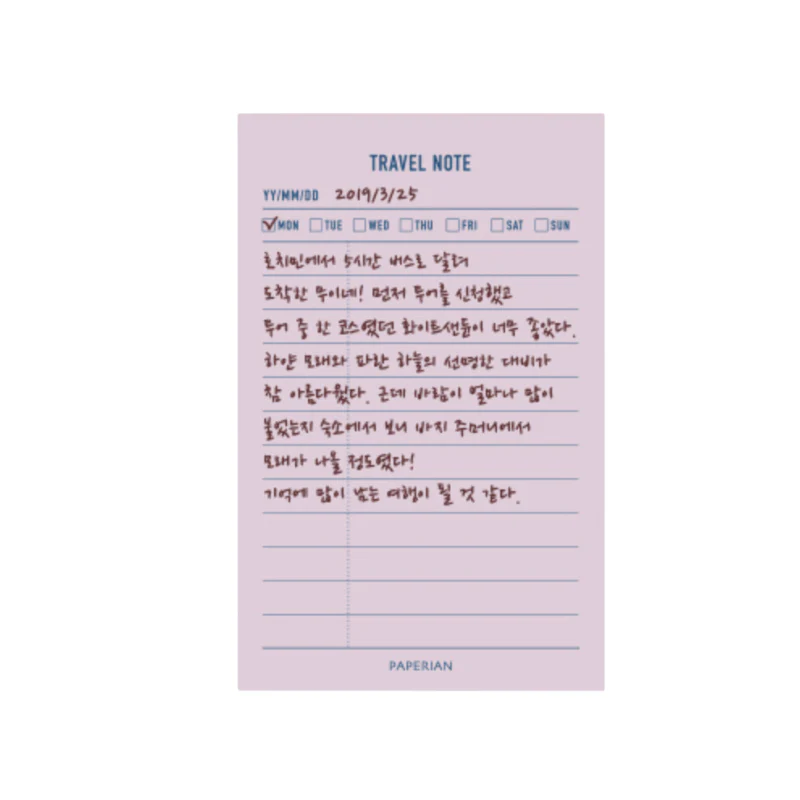 TRAVEL NOTE
YY/MM/DD 2019/3/25
MON TUE WED THU FRI SAT SUN
호치민에서 5시간 버스로 달려
도착한 무이네! 먼저 투어를 신청했고
투어 중 한 코스였던 화이트샌듄이 너무 좋았다.
하얀 모래와 파란 하늘의 선명한 대비가
참 아름다웠다. 근데 바람이 얼마나 많이
불었는지 숙소에서 보니 바지 주머니에서
모래가 나올 정도였다!
기억에 많이 남는 여행이 될 것 같다.
PAPERIAN